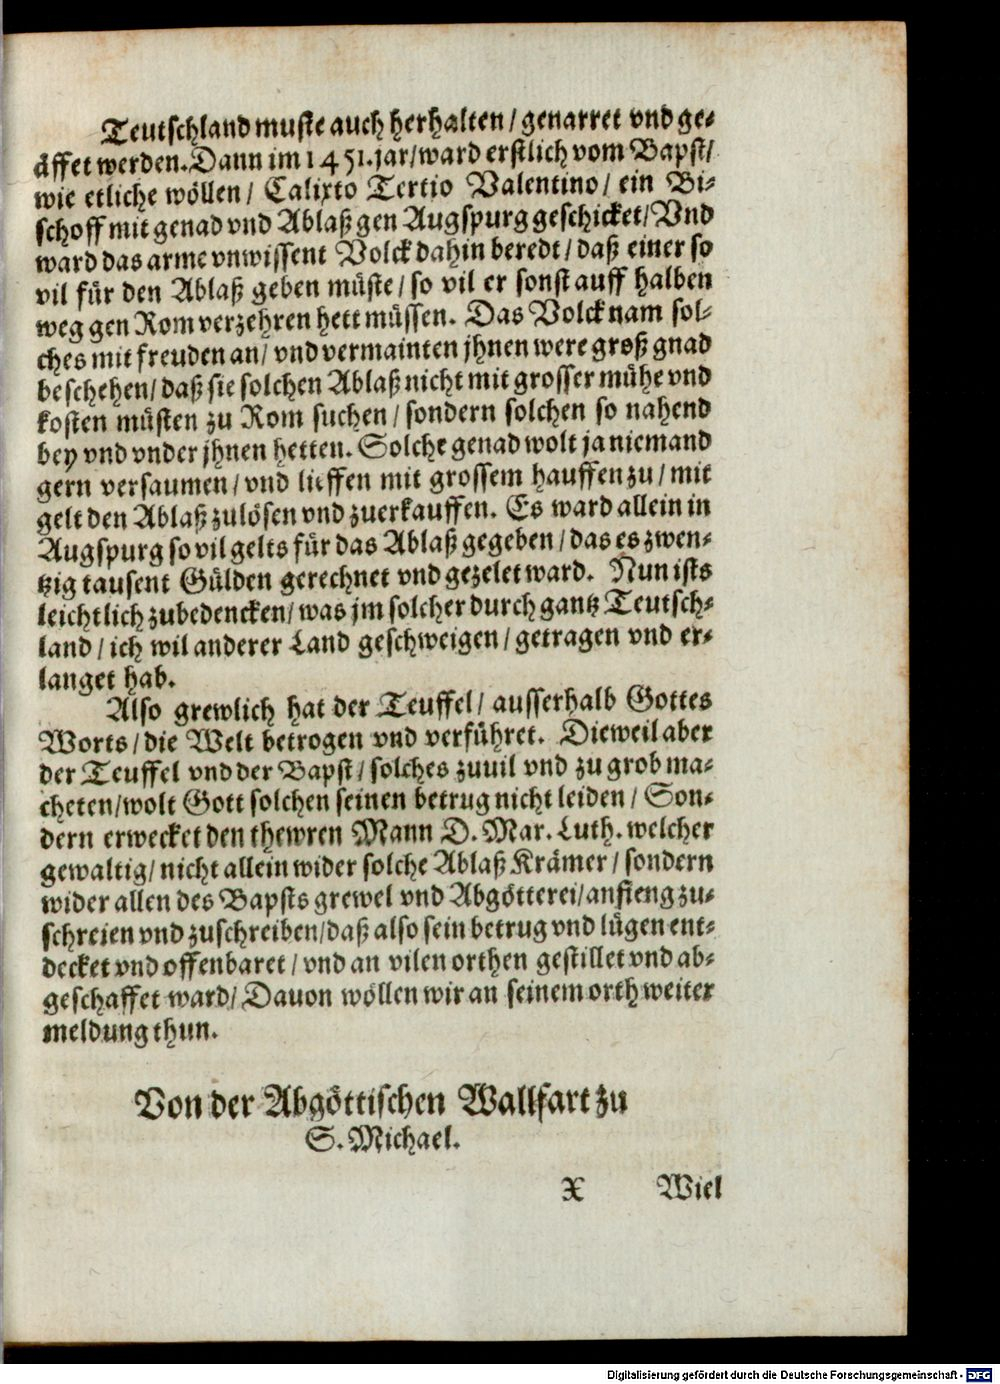 Teutschland muste auch herhalten / genarret vnd ge-
äffet werden. Dann im 1451. jar / ward erstlich vom Bapst /
wie etliche wöllen / Calixto Tertio Valentino / ein Bi-
schoff mit genad vnd Ablaß gen Augspurg geschicket / Vnd
ward das arme vnwissent Volck dahin beredt / daß einer so
vil für den Ablaß geben müste / so vil er sonst auff halben
weg gen Rom verzehren hett müssen. Das Volck nam sol-
ches mit freuden an / vnd vermainten jhnen were groß gnad
beschehen / daß sie solchen Ablaß nicht mit grosser mühe vnd
kosten müsten zu Rom suchen / sondern solchen so nahend
bey vnd vnder jhnen hetten. Solche genad wolt ja niemand
gern versaumen / vnd lieffen mit grossem hauffen zu / mit
gelt den Ablaß zulösen vnd zuerkauffen. Es ward allein in
Augspurg so vil gelts für das Ablaß gegeben / das es zwen-
tzig tausent Gülden gerechnet vnd gezelet ward. Nun ists
leichtlich zubedencken / was jm solcher durch gantz Teutsch-
land / ich wil anderer Land geschweigen / getragen vnd er-
langet hab.
Also grewlich hat der Teuffel / ausserhalb Gottes
Worts / die Welt betrogen vnd verführet. Dieweil aber
der Teuffel vnd der Bapst / solches zuuil vnd zu grob ma-
cheten / wolt Gott solchen seinen betrug nicht leiden / Son-
dern erwecket den thewren Mann D. Mar. Luth. welcher
gewaltig / nicht allein wider solche Ablaß Krämer / sondern
wider allen des Bapsts grewel vnd Abgötterei / anfieng zu-
schreien vnd zuschreiben / daß also sein betrug vnd lügen ent-
decket vnd offenbaret / vnd an vilen orthen gestillet vnd ab-
geschaffet ward / Dauon wöllen wir an seinem orth weiter
meldung thun.
Von der Abgöttischen Wallfart zu
S. Michael.
X Wiel
Digitalisierung gefördert durch die Deutsche Forschungsgemeinschaft - DFG